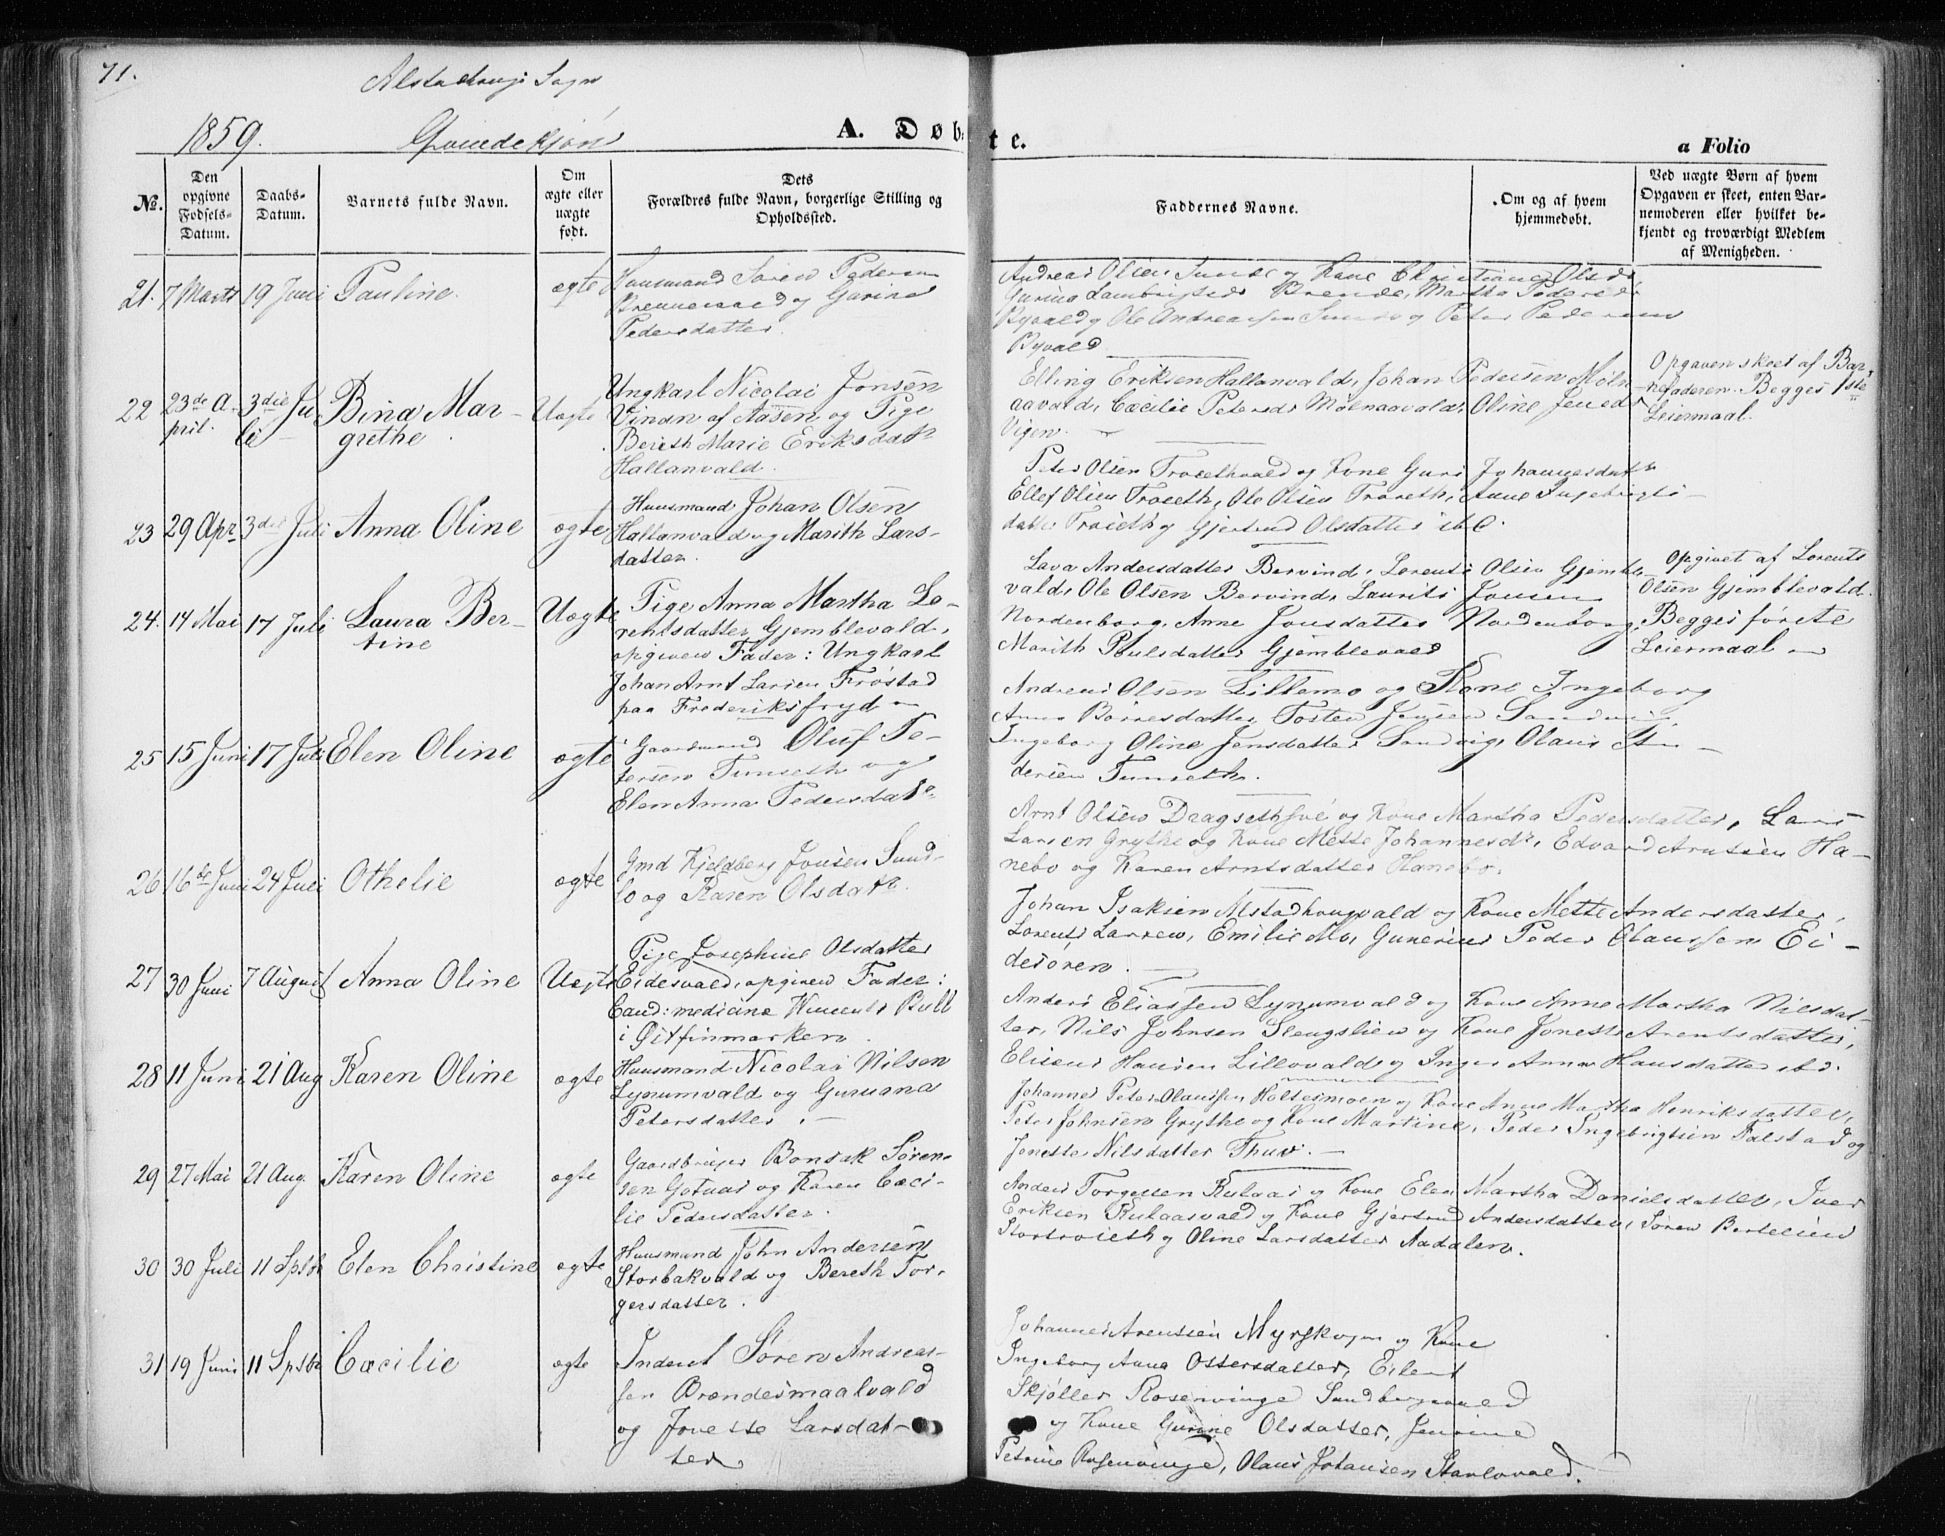 71.
Alstadhaugs Sogn
1859. Qvindekjøn A. Døbte. a Folio
No.
Den opgivne Fødsels-Datum.
Daabs-Datum.
Barnets fulde Navn.
Om ægte eller uægte født.
Dets
Forældres fulde Navn, borgerlige Stilling og
Opholdssted.
Faddernes Navne.
Om og af hvem
hjemmedøbt.
Ved uægte Børn af hvem
Opgaven er skeet, enten Bar-
nemoderen eller hvilket be-
kjendt og troværdigt Medlem
af Menigheden.
21. 7 Marts 19 Juni Pauline. ægte
Huusmand Sören Pedersen
og Gurine
Pedersdatter.
Andreas Olsen og Kone Christiane Olsdr
Martha Pedersdr
Byvald og Ole Andreassen og Peter Pedersen
Byvald
22 23de A-
pril. 3die Ju
li Bina Mar-
grethe. Uægte
Ungkarl Nicolai Jonsen
Vinan af Aasen og Pige
Bereth Marie Eriksdatr
Hallanvald.
Elling Eriksen Hallanvald, Johan Pedersen Moln-
aavald, Cæcilie Petersdr Molnaavald, Oline Jensdr
Vigen.
Opgaven skeet af Bar-
nefaderen. Begges 1ste
Leiermaal.
23 29 Apr 3die Juli Anna Oline ægte
Huusmand Johan Olsen
Hallanvald og Marith Lars-
datter.
Peter Olsen og Kone Guri Johannesdatr
Ellef Olsen Ole Olsen Anne Ingebrigts-
datter og Gjertrud Olsdatter ibd.
24. 14 Mai 17 Juli Laura Ber-
tine Uægte
Pige Anna Martha Lo-
rentsdatter Gjemblevald,
opgiven Fader: Ungkarl
Johan Arnt Larsen Frøstad
paa Frederiksfryd
Andersdatter Bervind, Lorents Olsen Gjemble-
vald, Ole Olsen Bervind, Laurits Jonsen
Nordenborg, Anne Jonsdatter Nordenborg,
Marith Poulsdatter Gjemblevald
Opgivet af Lorents
Olsen Gjemblevald.
Begges förste
Leiermaal
25 15 Juni 17 Juli Elen Oline ægte
Gaardmand Oluf Pe-
tersen Tunseth og
Elen Anna Pedersdatr
Andreas Olsen Littemo og Kone Ingeborg
Anna Börresdatter, Tosten Jensen Sandvig,
Ingeborg Oline Jensdatter Sandvig, Olaus An-
dersen Tunseth.
26 16de Juni 24 Juli Othelie ægte
Gmd Kjeldberg Jonsen Sund-
bo og Karen Olsdatr.
Arnt Olsen og Kone Martha Pedersdatter, Lars
Larsen Grythe og Kone Mette Johannesdr, Edvard Arntsen Ha-
nebo og Karen Arntsdatter Hanebo.
27 30 Juni 7 August Anna Oline Uægte
Pige Josephine Olsdatter
Eidesvald, opgiven Fader:
Cand: medicine Bull
i Östfinmarken.
Johan Isaksen Alstadhougvald og Kone Mette Andersdatter,
Lorents Larsen, Emilie Mo, Gunerius Peder Olaussen Ei-
desoren.
28 11 Juni 21 Aug Karen Oline ægte
Huusmand Nicolai Nilsen
Lynumvald og Guruana
Petersdatter.
Anders Eliassen Lynumvald og Kone Anne Martha Nilsdat-
ter, Nils Johnsen og Kone Jonette Arentsdatter,
Eliseus Hansen Lillovald og Inger Anna Hansdatter ibd.
29 27 Mai 21 Aug. Karen Oline ægte
Gaardbruger Bonsak Sören-
sen Gotaas og Karen Cæci-
lie Pedersdatter.
Johannes Peter Olaussen Holtesmoen og Kone Anne Martha Henriksdatter,
Peter Johnsen Grythe og Kone Martine, Peder Ingebrigtsen Falstad og
Jonette Nilsdatter Thuv.
30 30 Juli 11 Sptbr Elen Christine ægte
Huusmand John Andersen
Storbakvald og Bereth Tor-
gersdatter.
Anders Torgersen og Kone Elen Martha Danielsdatter, Iver
Eriksen og Kone Gjertrud Andersdatter, Sören
og Oline Larsdatter Aadalen.
31 19 Juni 11 Sptbr Cæcilie ægte
Inderst Sören Andreas-
sen Brændesmaalvald
og Jonette Larsdat-
ter
Johannes Arentsen Myrskogen og Kone
Ingeborg Anna Ottersdatter, Eilert
Skjöller Rosenvinge
og Kone Gurine Olsdatter, Jensine
Petrine Rosenvinge, Olaus Johansen